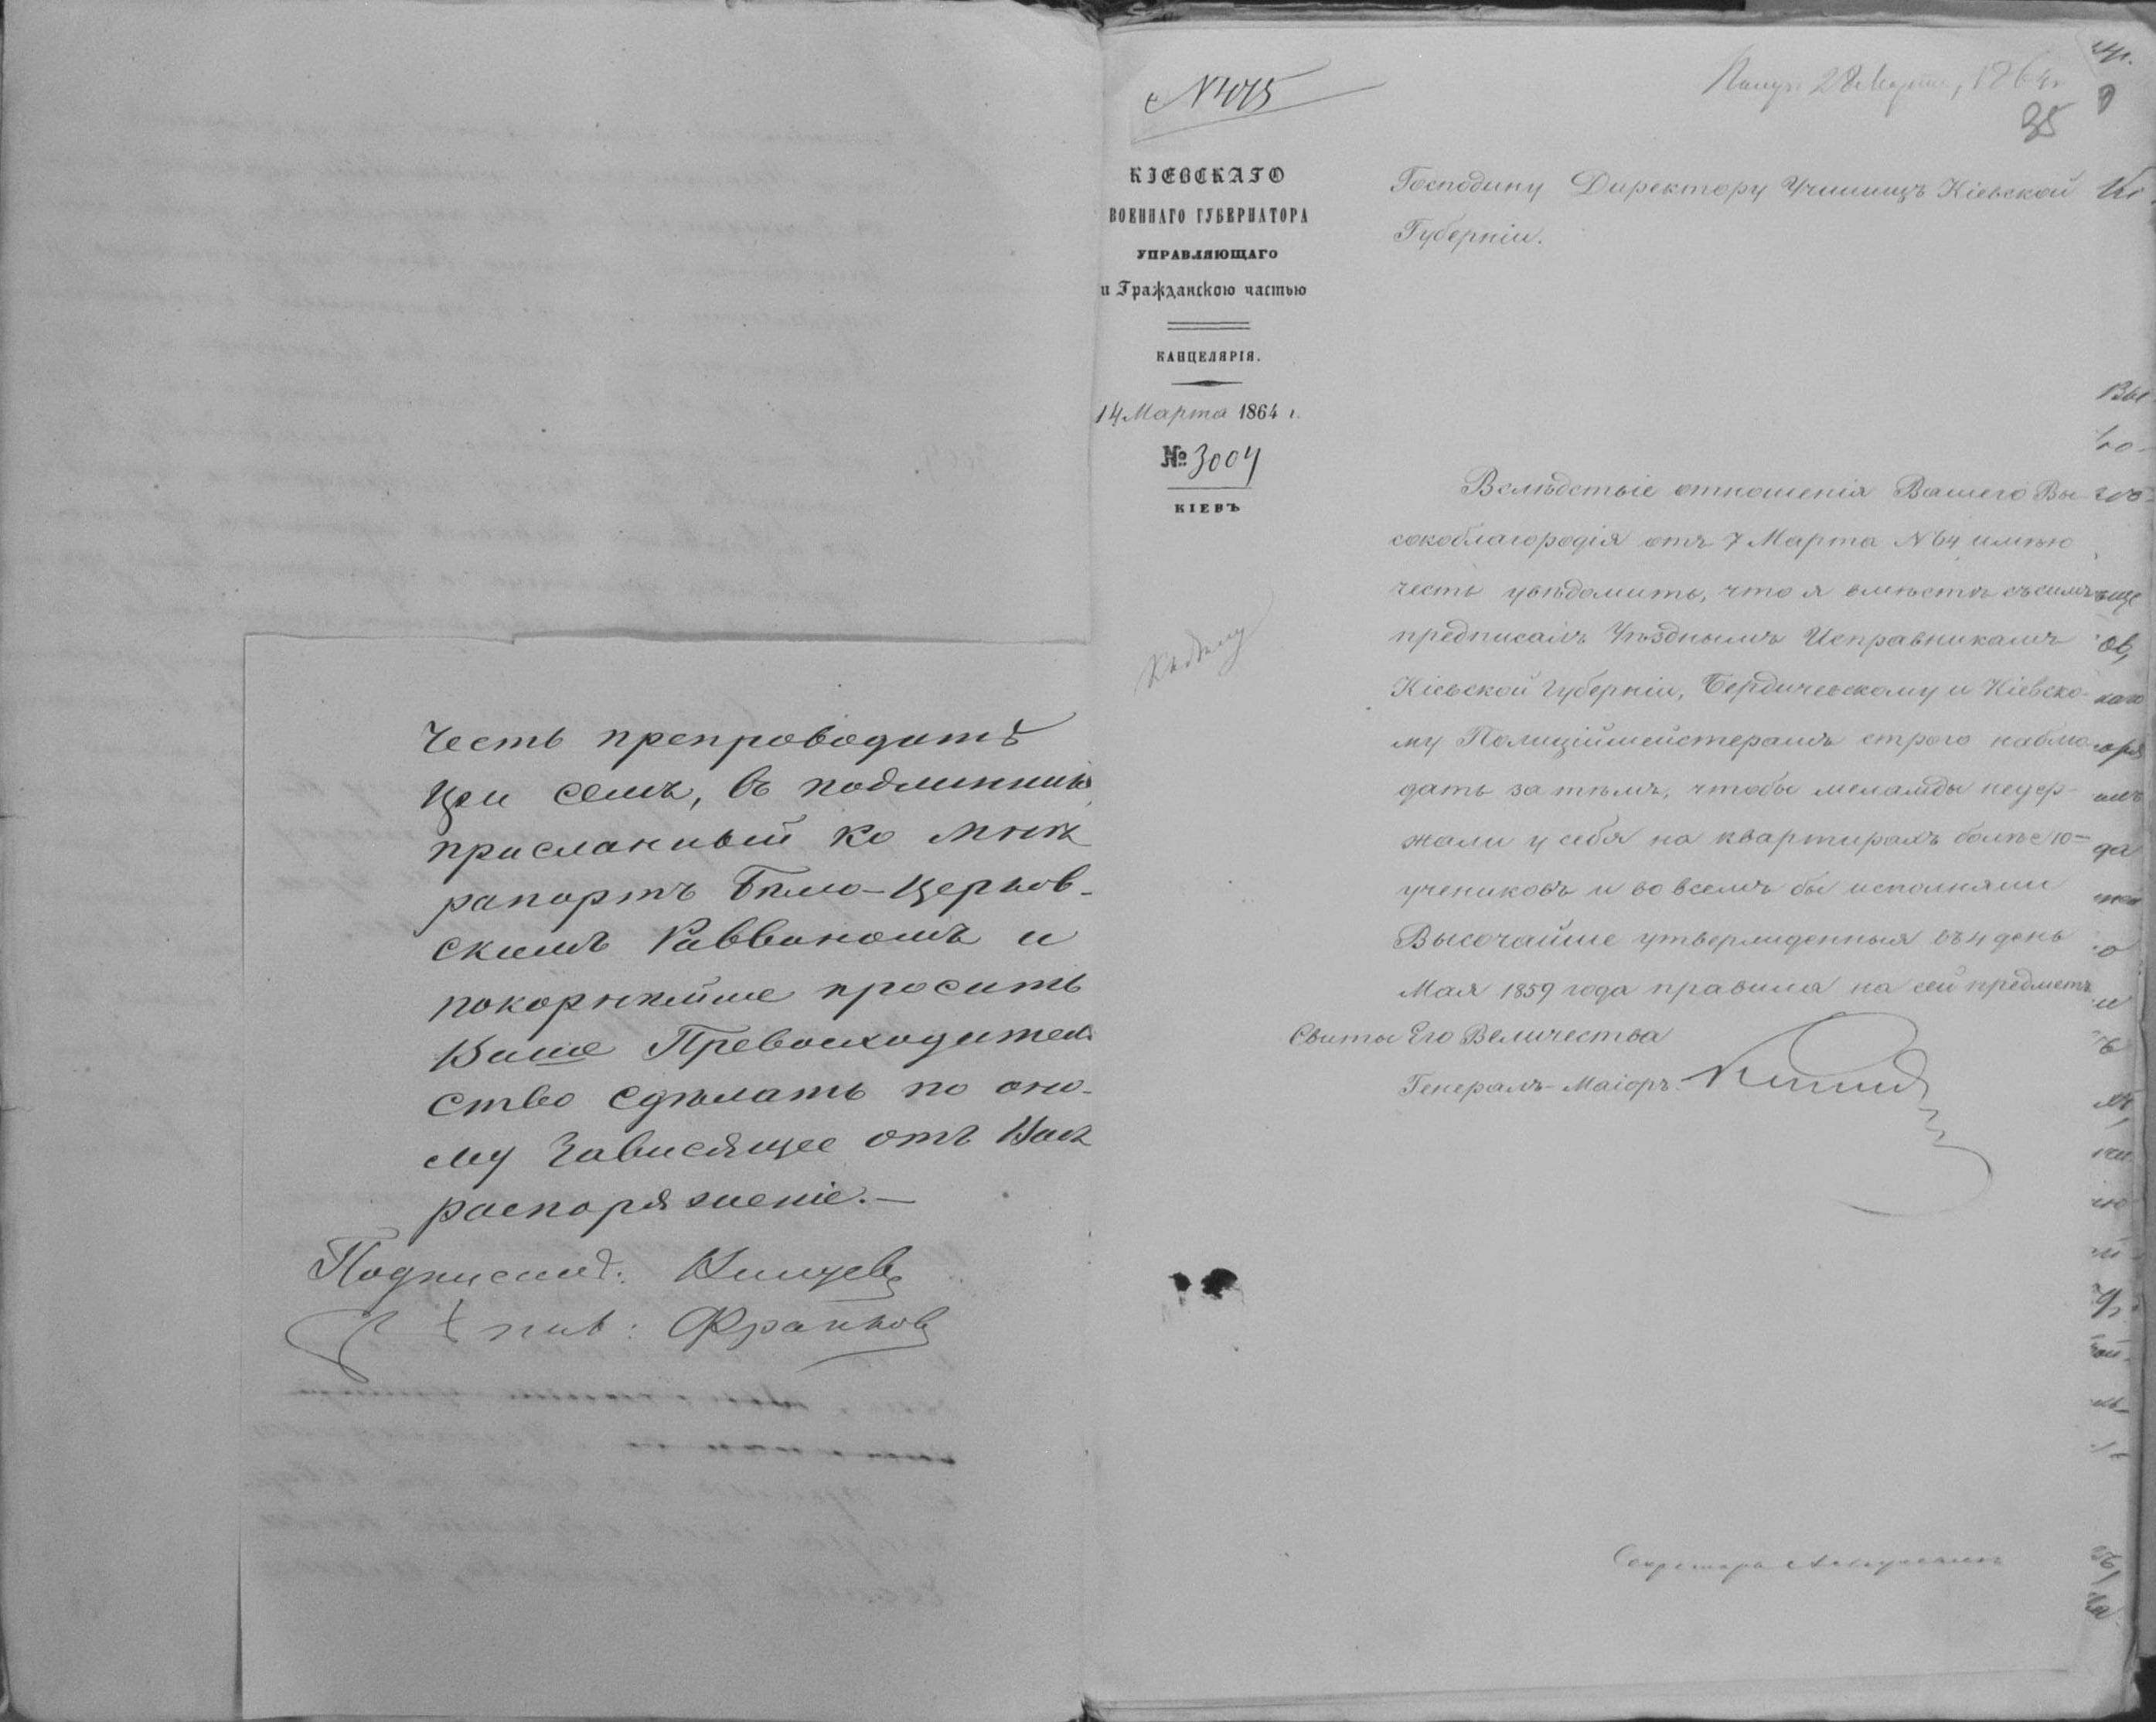 честь препроводить
при семъ, въ подлинникѣ,
присланный ко мнѣ
рапортъ Бѣло-Церков-
скимъ Раввиномъ и
покорнѣйше просить
Ваше Превосходитель
ство сдѣлать по оно-
му зависящее отъ Васъ
распоряженіе.—
Подписалъ:
№ 475
Получ. 28 Марта, 1864 г.
35
КІЕВСКАГО
ВОЕННАГО ГУБЕРНАТОРА
УПРАВЛЯЮЩАГО
и Гражданскою частью
КАНЦЕЛЯРІЯ.
14 Марта 1864 г.
№ 3004
КІЕВЪ
Къ дѣлу
Господину Директору Училищъ Кіевской
Губерніи.
Вслѣдствіе отношенія Вашего Вы
сокоблагородія отъ 7 Марта № 64, имѣю
честь увѣдомить, что я вмѣстѣ съ симъ
предписалъ Уѣзднымъ Исправникамъ
Кіевской Губерніи, Бердичевскому и Кіевско-
му Полиціймейстерамъ строго наблю
дать за тѣмъ, чтобы меламды недер-
жали у себя на квартирахъ болѣе 10-
учениковъ и во всемъ бы исполняли
Высочайше утвержденныя въ 4 день
Мая 1859 года правила на сей предметъ
Свиты Его Величества
Генералъ-Маіоръ
Секретарь